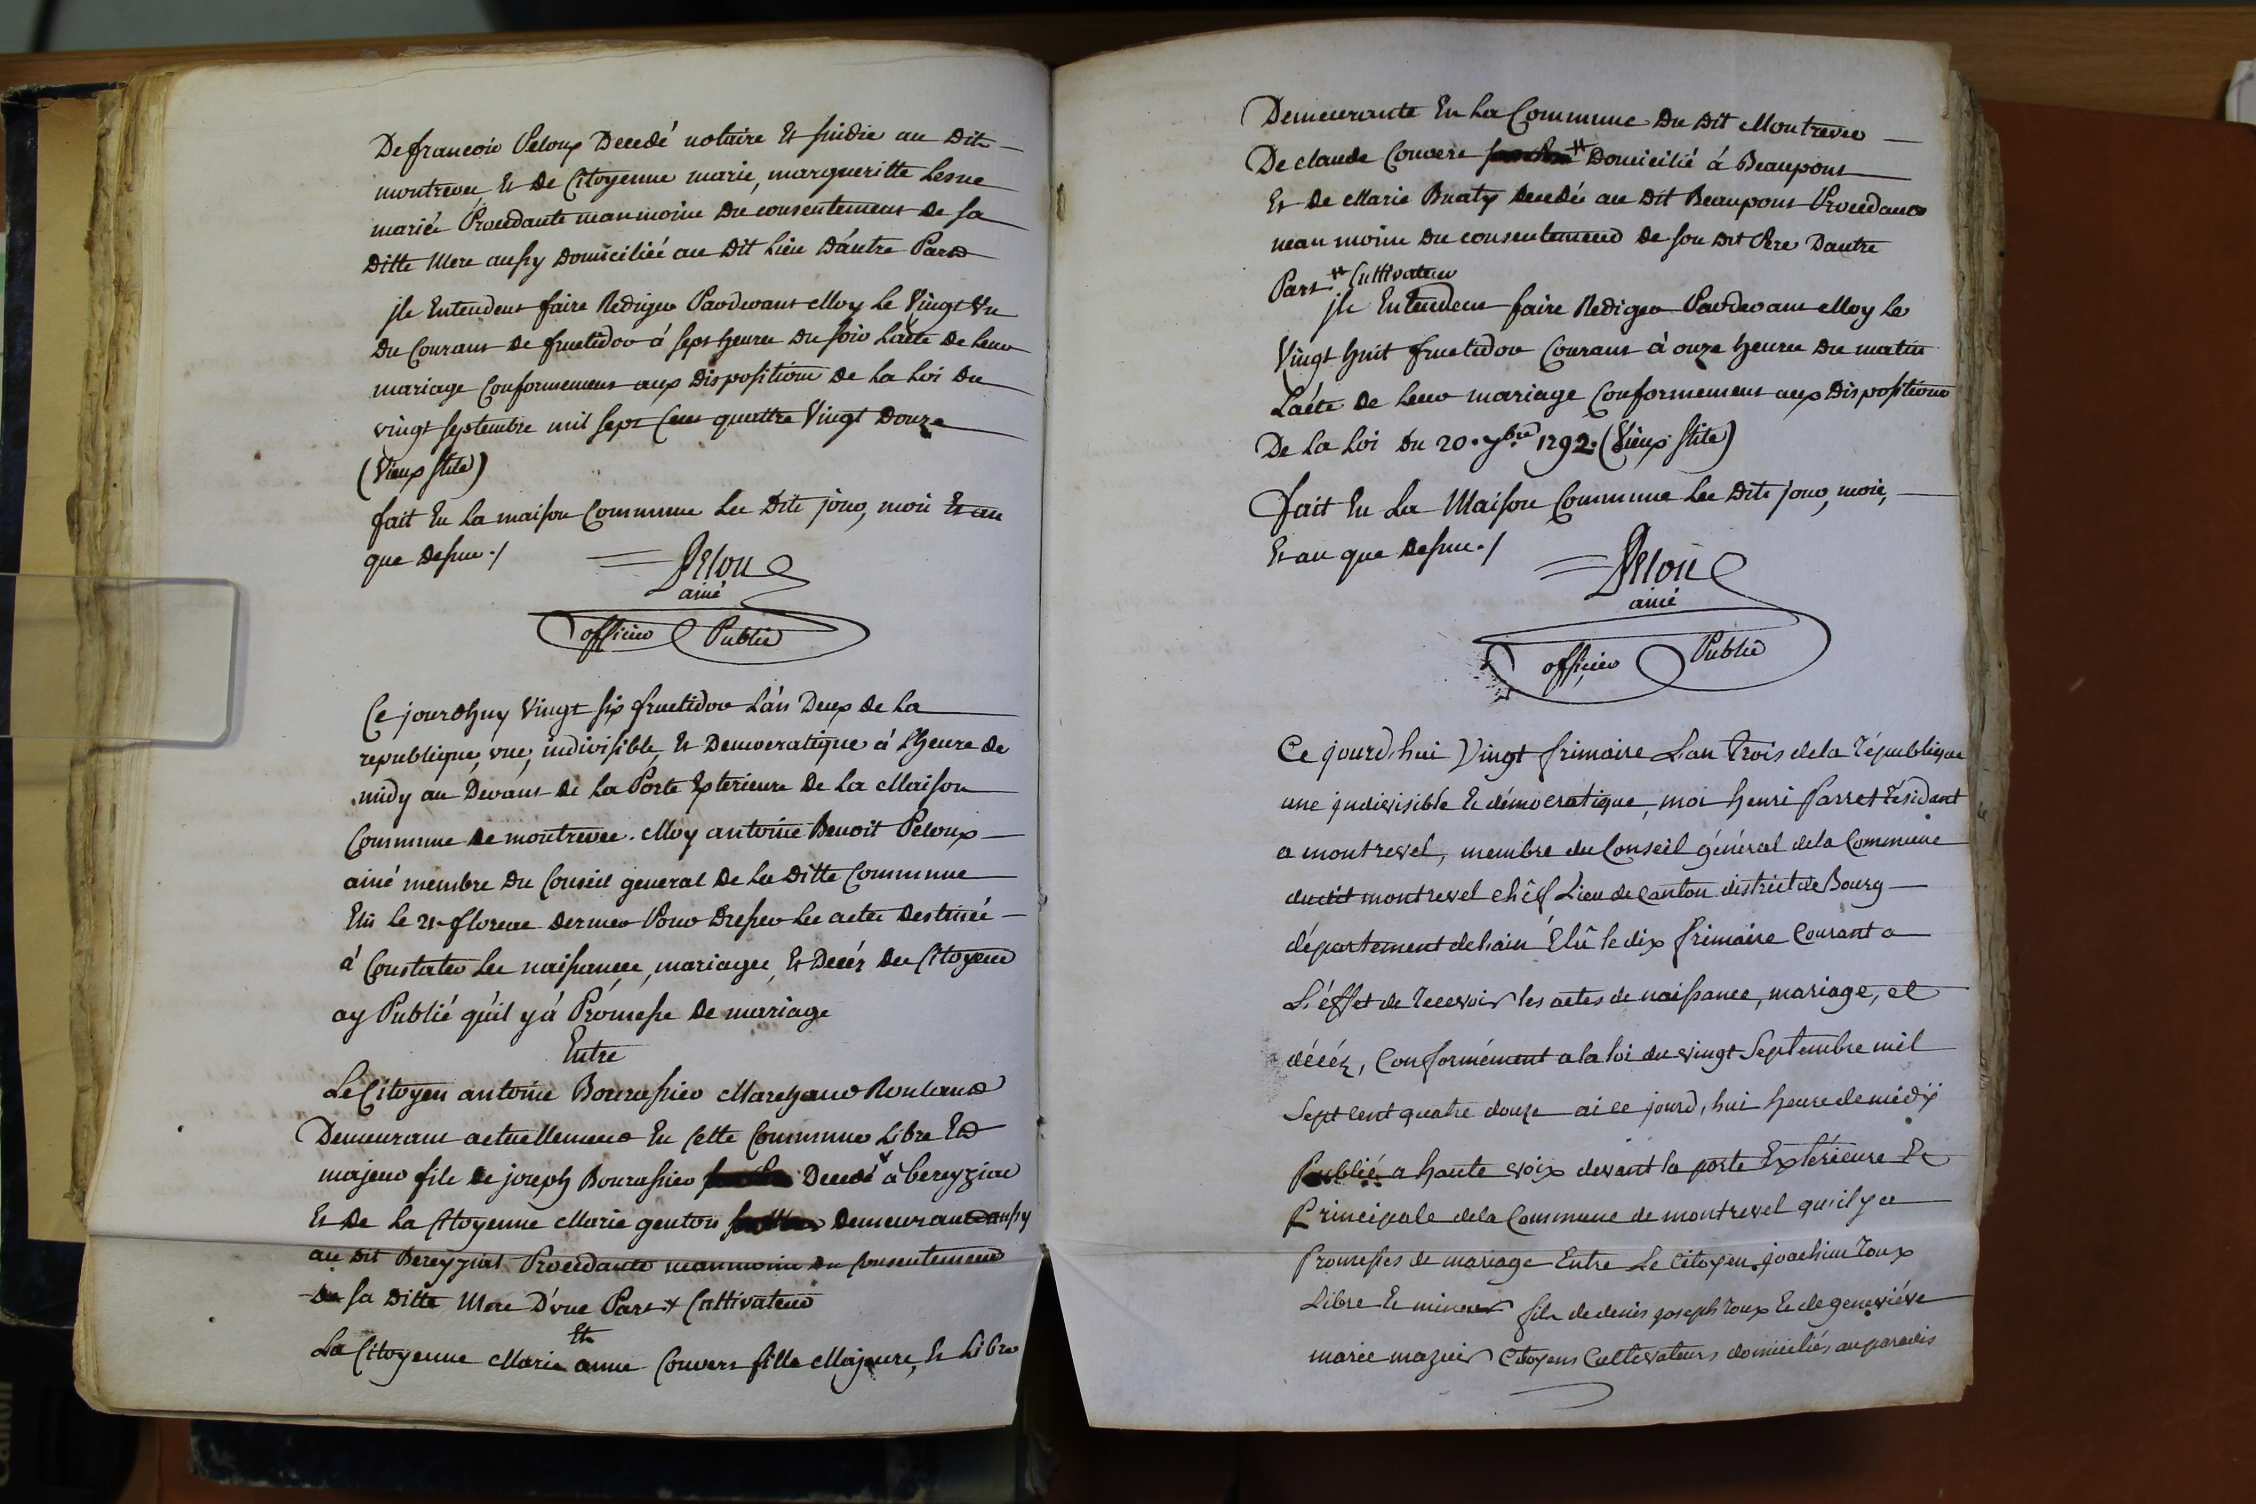 De francois Peloux Decedé notaire Et sindic au Dit
montrevel, Et De Citoyenne marie, margueritte Lesne
mariée Procedante neanmoins du consentement de sa
ditte Mere aussy Domiciliée au Dit Lieu D'autre Part
ils Entendent faire Rediger Pardevant Moy Le Vingt Un
du Courant de fructidor á sept heures du soir L'acte De Leur
mariage Conformement aux Dispositions De La Loi Du
vingt septembre mil sept Cent quattre Vingt Douze
(Vieux stile)
fait En La maison Commune Les Dits jour, mois Et an
que Dessus ./
Pelou
ainé
officier Public
Ce jourdhuy Vingt six fructidor L'an Deux de La
republique, une, indivisible, Et Democratique á L'heure de
midy au Devant De La Porte Exterieure De La Maison
Commune de montrevel. Moy antoine Benoit Peloux
ainé membre Du Conseil general De La Ditte Commune
Elû le 21 floreal dernier Pour Dresser Les actes destinés
á Constater Les naissances, mariages, Et Decés Des Citoyens
ay Publié qu'il y á Promesse De mariage
Entre
Le Citoyen antoine Bourassier Marchand Roulant
Demeurant actuellement En Cette Commune Libre Et
majeur fils De joseph Bourassier Decedé á bereyziat
Et De La Citoyenne Marie genton Demeurant aussy
au Dit Bereyziat Procedante neanmoins du Consentement
De sa Ditte Mere D'une Part + Cultivateur
Et
La Citoyenne Marie anne Convert fille Majeure, Et Libre
Demeurante En La Commune Du Dit Montrevel
De claude Convert # Domicilié á Beaupont
Et De Marie Buaty Decedée au Dit Beaupont Procedant
neanmoins Du consentement De son Dit Pere Dautre
Part # Cultivateur
ils Entendent faire Rediger Pardevant Moy Le
Vingt huit fructidor Courant á onze heures Du matin
L'acte De Leur mariage Conformement aux Dispositions
De La Loi Du 20. 7bre 1792. (Vieux stile)
fait En La Maison Commune Les Dits jour, mois,
Et an que Dessus ./
Pelou
ainé
officier Public
Ce jourd'hui Vingt frimaire L'an trois de la République
une indivisible Et démocratique, moi henri farret résidant
a montrevel, membre du Conseil général de la Commune
dudit montrevel chêf Lieu de Canton district de Bourg
département de Lain Elû le dix frimaire Courant a
L'éffet de recevoir les actes de naissance, mariage, et
décéz, Conformément a la loi du vingt Septembre mil
Sept cent quatre douze ai ce jourd, hui heure de midÿ
Publié a haute voix devant la porte Extérieure Et
Principale de la Commune de montrevel qu'il y a
Promesses de mariage Entre Le Citoyen joachim roux
Libre Et mineur fils de denis joseph roux Et de geneviéve
marie mazuir Citoyens Cultivateurs domiciliés au paradis